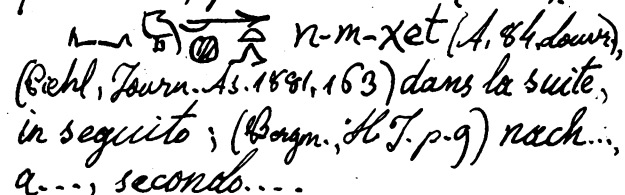 n-m-χet (A. 84. Louvr),
(Piehl, Journ. As. 1881, 163) dans la suite,
in seguito; (Bergm., H J. p. 9) nach...,
a..., secondo....